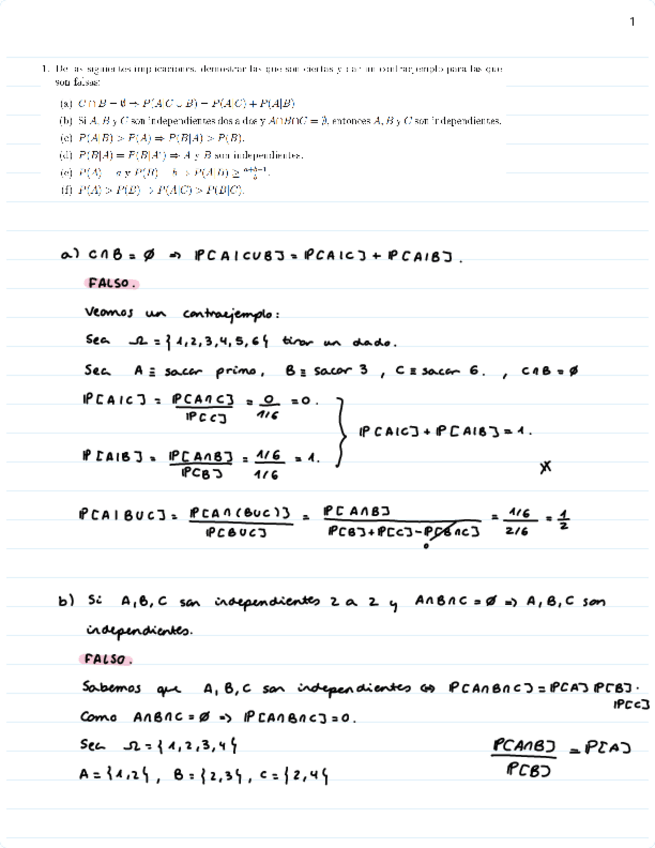 1
1. De las siguientes implicaciones, demostrar las que son ciertas y dar un contraejemplo para las que
son falsas:
(a) C ∩ B = ∅ ⇒ P(A|C ∪ B) = P(A|C) + P(A|B)
(b) Si A, B y C son independientes dos a dos y A∩B∩C = ∅, entonces A, B y C son independientes.
(c) P(A|B) > P(A) ⇒ P(B|A) > P(B).
(d) P(B|A) = P(B|Aᶜ) ⇒ A y B son independientes.
(e) P(A) = a y P(B) = b ⇒ P(A|B) ≥ (a+b−1)/b.
(f) P(A) > P(B) ⇒ P(A|C) > P(B|C).
a) C∩B = ∅ ⇒ P[A|C∪B] = P[A|C] + P[A|B].
FALSO.
Veamos un contraejemplo:
Sea Ω = {1,2,3,4,5,6} tirar un dado.
Sea A ≡ sacar primo, B ≡ sacar 3, C ≡ sacar 6., C∩B = ∅
P[A|C] = P[A∩C]/P[C] = 0/1/6 = 0.
P[A|C] + P[A|B] = 1.
P[A|B] = P[A∩B]/P[B] = 1/6/1/6 = 1.
X
P[A|B∪C] = P[A∩(B∪C)]/P[B∪C] = P[A∩B]/P[B]+P[C]-P[B∩C] = 1/6/2/6 = 1/2
0
b) Si A,B,C son independientes 2 a 2 y A∩B∩C = ∅ ⇒ A,B,C son
independientes.
FALSO.
Sabemos que A,B,C son independientes ⇔ P[A∩B∩C] = P[A] P[B]·
P[C]
Como A∩B∩C = ∅ ⇒ P[A∩B∩C] = 0.
Sea Ω = {1,2,3,4}
A = {1,2}, B = {2,3}, C = {2,4}
P[A∩B]/P[B] = P[A]